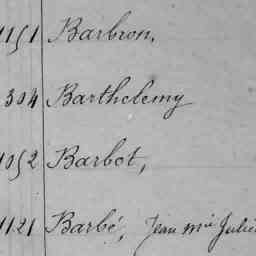 1151 Barbron,
304 Barthelemy
1052 Barbot,
1121 Barbé, Jean mie Julie